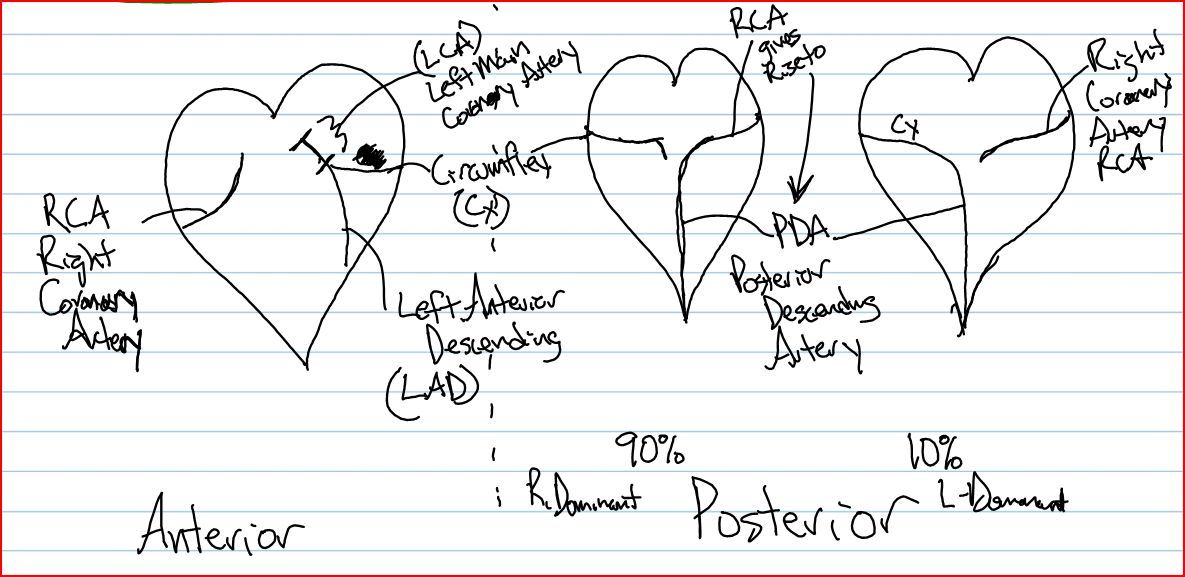 (LCA)
Left Main
Coronary Artery
RCA
Right
Coronary
Artery
Circumflex
(Cx)
Left Anterior
Descending
(LAD)
Anterior
RCA
gives
Rise to
PDA
Posterior
Descending
Artery
Cx
Right
Coronary
Artery
RCA
90%
R. Dominant
10%
L-Dominant
Posterior